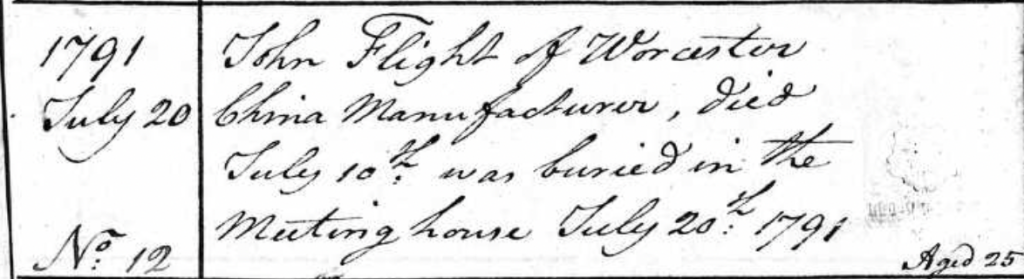 1791
July 20
No. 12
John Flight of Worcester
China Manufacturer, died
July 10th. was buried in the
Meeting house July 20th. 1791
Aged 25